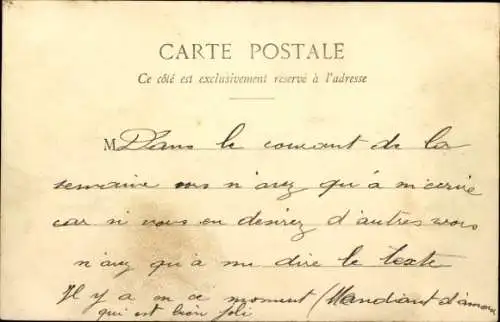 CARTE POSTALE
Ce côté est exclusivement réservé à l'adresse
M Dans le courant de la
semaine vs n'avez qu'à m'écrire
car si vous en desirez d'autres vous
n'avez qu'à me dire le texte
Il y a en ce moment (Mandiant d'amour
qui est bien joli